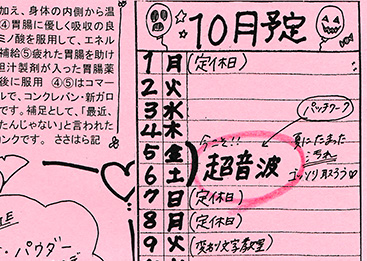 加え、身体の内側から温
④胃腸に優しく吸収の良
ミノ酸を服用して、エネル
補給⑤疲れた胃腸を助け
胆汁製剤が入った胃腸薬
後に服用 ④⑤はコマー
ルで、コンクレバン・新ガロ
です。補足として、「最近、
たんじゃない」と言われた
ンクです。 ささはら記
・パウダー
10月予定
1 月 (定休日)
2 火
3 水
4 木
パッチワーク
5 金 今こそ!!
6 土
超音波
夏にたまった
汚れ
ゴッソリ取ろう♡
7 日 (定休日)
8 月 (定休日)
9 火